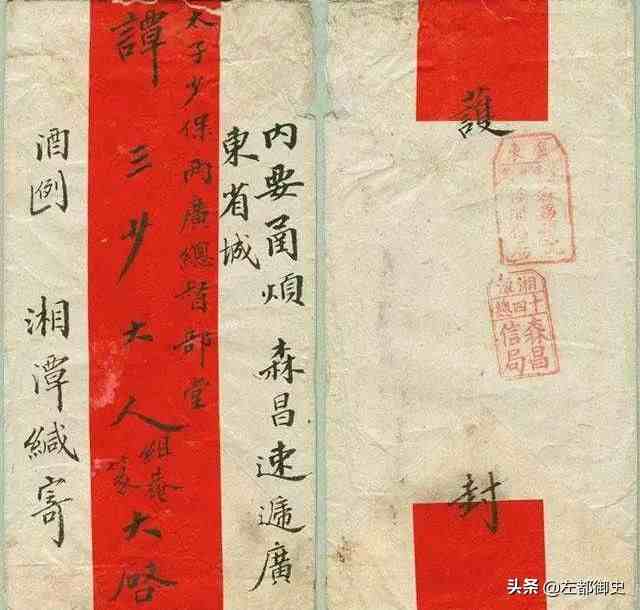 内要函煩 森昌速遞廣
東省城
太子少保兩廣總督部堂
譚三少大人 組菴 篆 大啓
酒例 湘潭緘寄
護
湘潭十四總
森昌
信局
封
头条 @左都御史